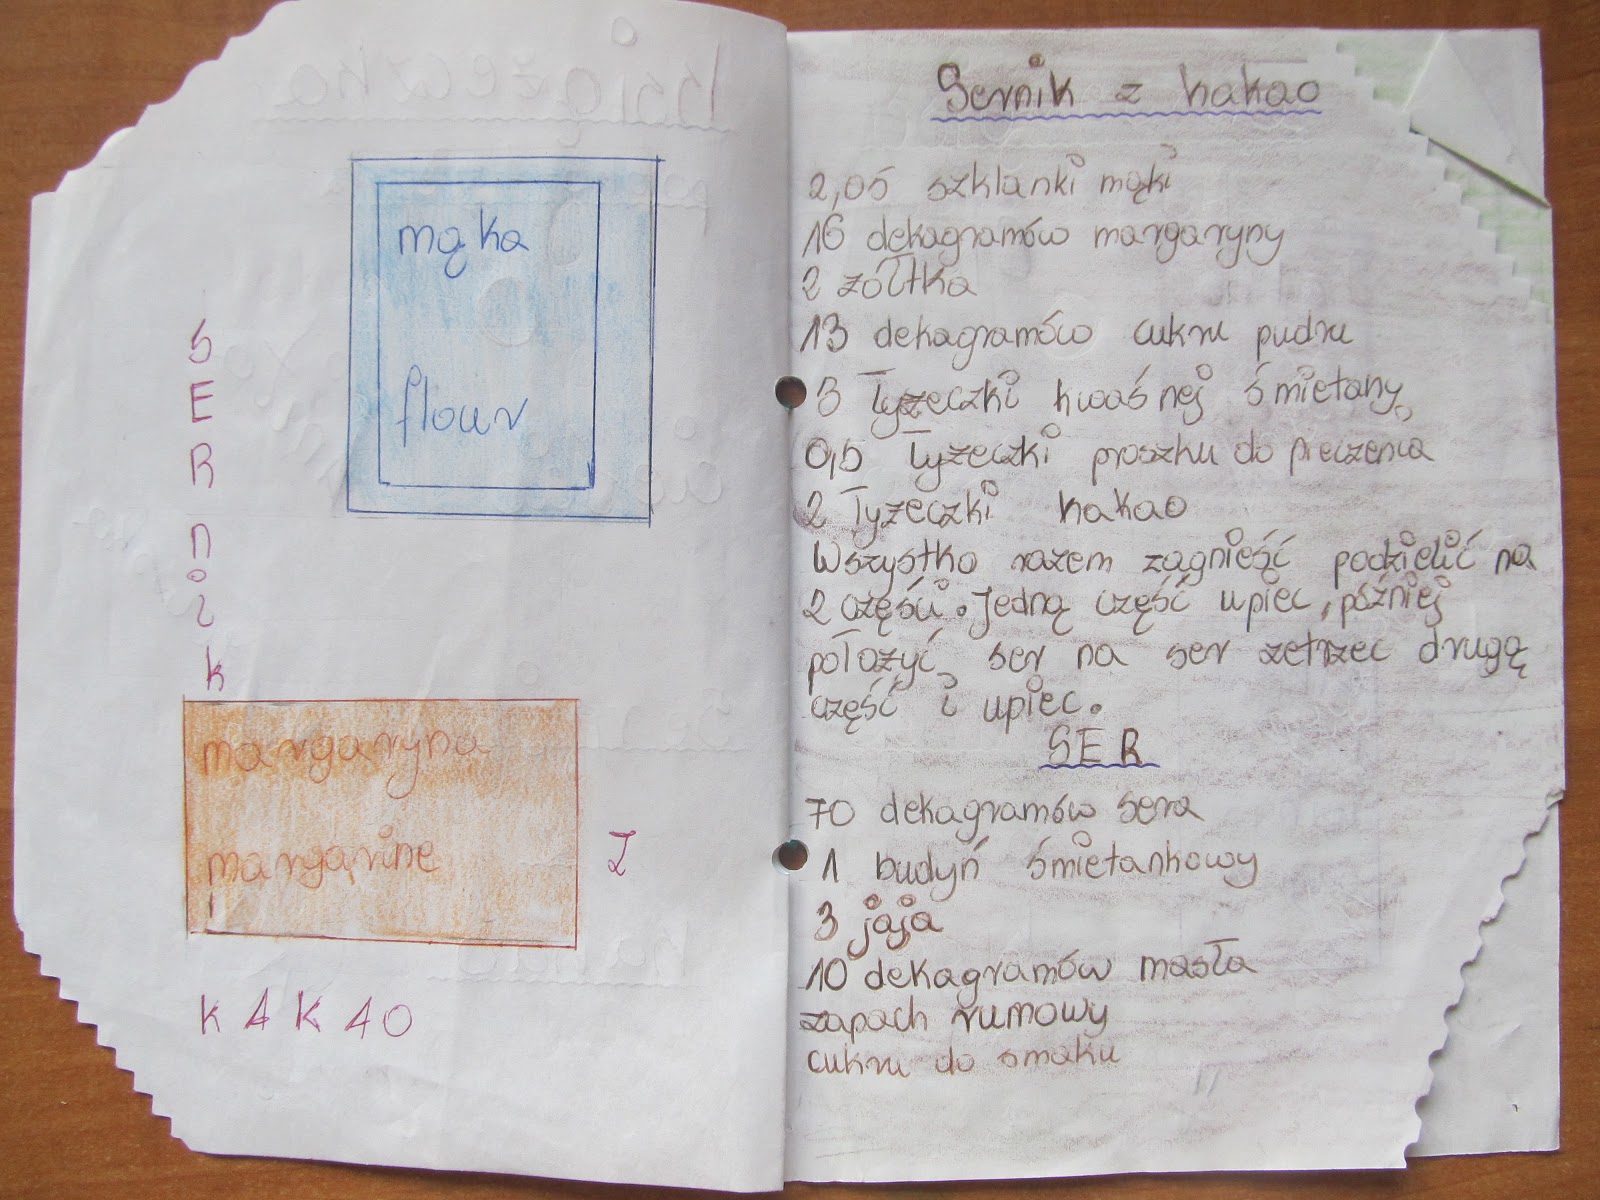 mąka
flour
SERnik
margaryna
margarine
Z
KAKAO
Sernik z kakao
2,05 szklanki mąki
16 dekagramów margaryny
2 żółtka
13 dekagramów cukru pudru
3 łyżeczki kwaśnej śmietany
0,5 łyżeczki proszku do pieczenia
2 łyżeczki kakao
Wszystko razem zagnieść podzielić na
2 części. Jedną część upiec, później
położyć ser na ser zetrzec drugą
część i upiec.
SER
70 dekagramów sera
1 budyń śmietankowy
3 jaja
10 dekagramów masła
zapach rumowy
cukru do smaku